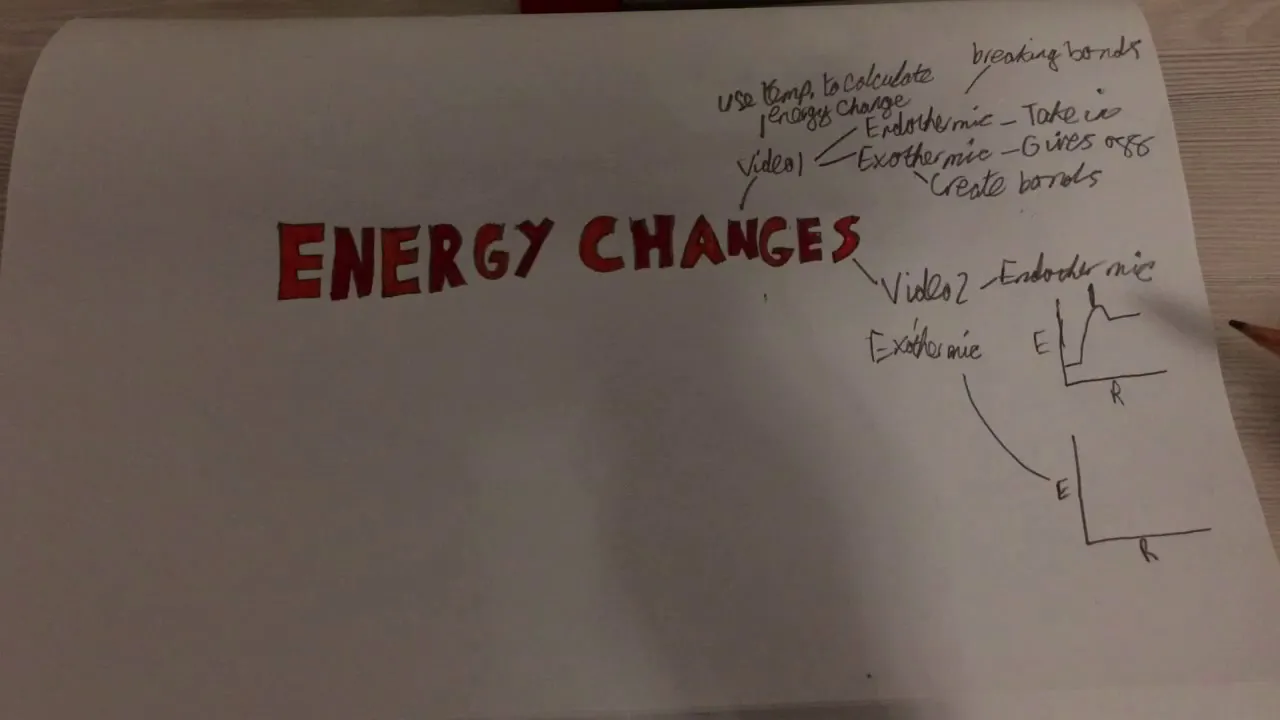 breaking bonds
use temp. to calculate
energy change
Endothermic - Take in
Video 1
Exothermic - Gives off
Create bonds
ENERGY CHANGES
Video 2 - Endothermic
Exothermic
E
R
E
R